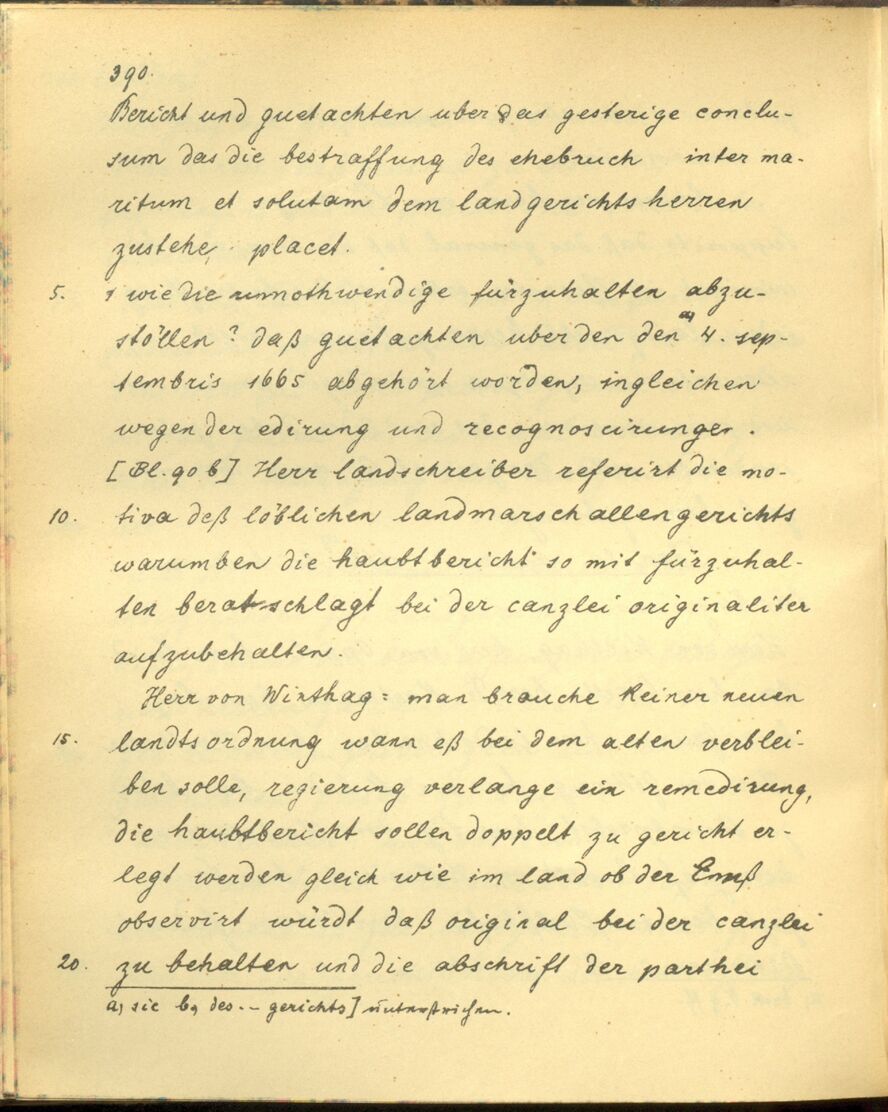 390.
Bericht und guetachten uber das gesterige conclu-
sum das die bestraffung des ehebruch inter ma-
ritum et solutam dem landgerichtsherren
zustehe, placet.
5. 1 wie die unnothwendige fürzuhalten abzu-
stöllen? daß guetachten uber den den a) 4. sep-
tembris 1665 abgehört worden, ingleichen
wegen der edirung und recognoscirungen.
[Bl. 90 b] Herr landschreiber referirt die mo-
10. tiva deß löblichen landmarschallengerichts
warumben die haubtbericht so mit fürzuhal-
ten beratschlagt bei der canzlei originaliter
aufzubehalten.
Herr von Winthag: man brauche keiner neuen
15. landtsordnung wann eß bei dem alten verblei-
ben solle, regierung verlange ein remedirung,
die haubtbericht sollen doppelt zu gericht er-
legt werden gleich wie im land ob der Ennß
observirt würdt daß original bei der canzlei
20. zu behalten und die abschrift der parthei
a, sic b, des -- gerichts] unterstrichen.